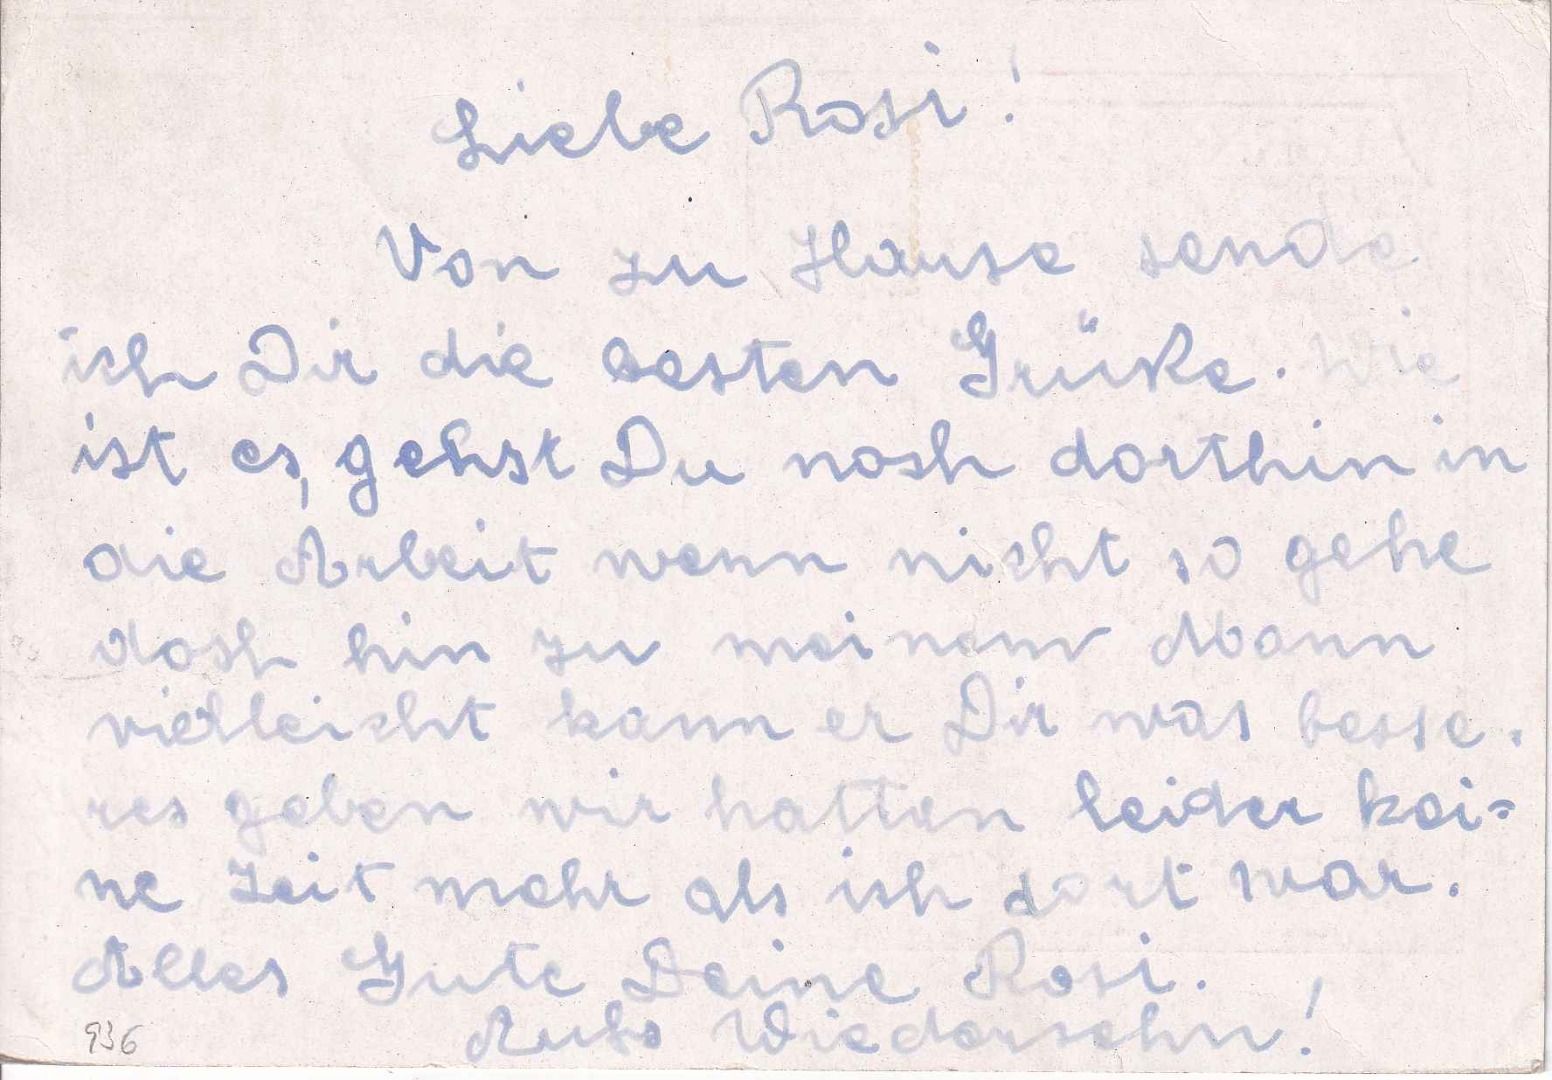 Liebe Rosi!
Von zu Hause sende
ich Dir die besten Grüße. Wie
ist es, gehst Du noch dorthin in
die Arbeit wenn nicht so gehe
doch hin zu meinem Mann
vielleicht kann er Dir was besse-
res geben wir hatten leider kei=
ne Zeit mehr als ich dort war.
Alles Gute Deine Rosi.
Aufs Wiedersehn!
936